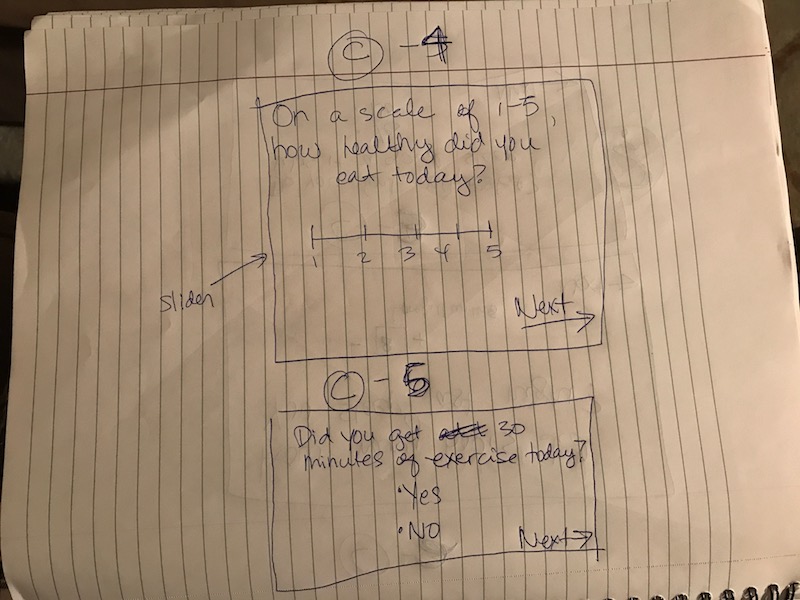 C - 4
On a scale of 1-5,
how healthy did you
eat today?
1 2 3 4 5
Slider
Next
C - 5
Did you get 30
minutes of exercise today?
• Yes
• NO
Next